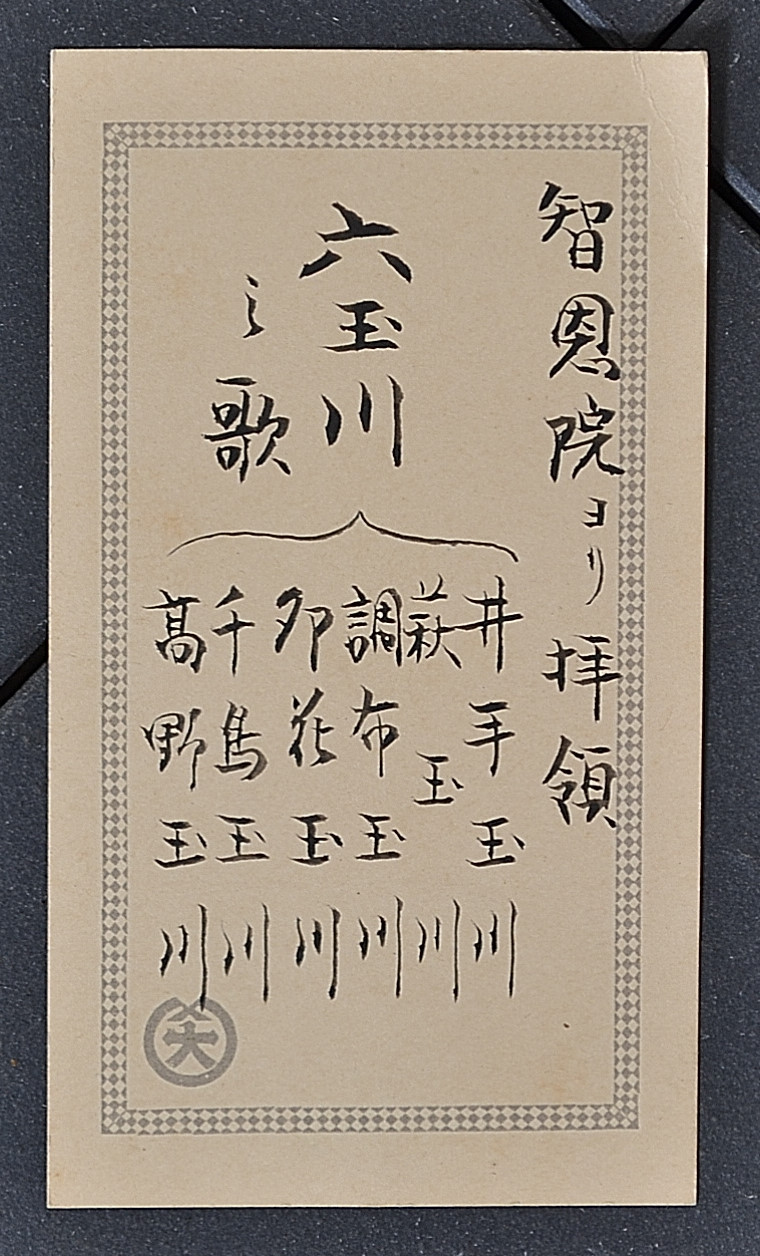 智恩院ヨリ拝領
六玉川
之歌
井手玉川
萩玉川
調布玉川
卯花玉川
千鳥玉川
高野玉川
大